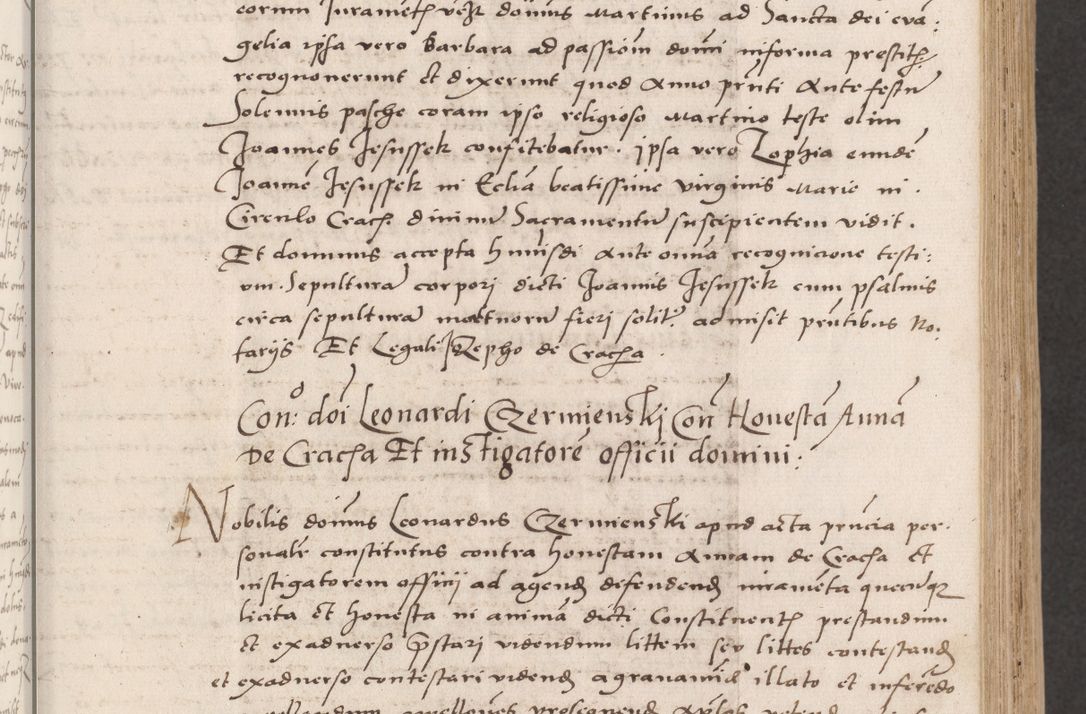 eorum Juramen videlicet domus Martinus ad Sancta dei eva:
gelia ipsa vero Barbara ad passiom domi in forma prestit
recognoverunt et dixerunt quod Anno pruti Ante festu
Solennis pasche coram ipso religioso Martino teste olim
Joannes Jesussek confitebatur. ipsa vero Zophia eunde
Joanne Jesussek in Eclia beatissime virginis Marie in
Circulo Crach divinu Sacramentu suscipientem vidit.
Et dominus accepta huiusdi Ante omia recognicione testi:
um. Sepultura corpori dicti Joannis Jesussek cum psalmis
circa sepultura mortuoru fieri solit admisit prutibus No:
tarijs Et Legali Jozepho de Cracha.
Con: doi Leonardi Czermienski Con Honesta Anna
De Cracha Et instigatore officii domini:
Nobilis doinus Leonardus Czermienski apud acta prucia per
sonalr constitutus contra honestam Annam de Cracha Et
instigatorem officij ad agend defendend iurameta quecuque
licita et honesta in anima dicti Constituent prestandum
et exadverso pstari videndum littem seu littes contestand
et exadverso contestari vidend agravamid illato et inferedo